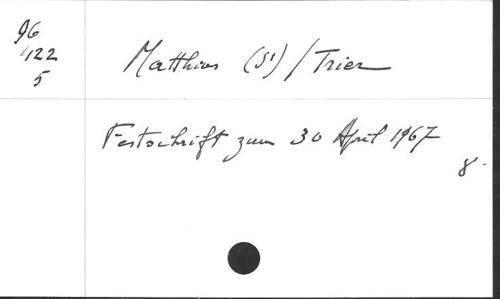 96
422
5
Matthias (St) / Trier
Festschrift zum 30 April 1967
8.